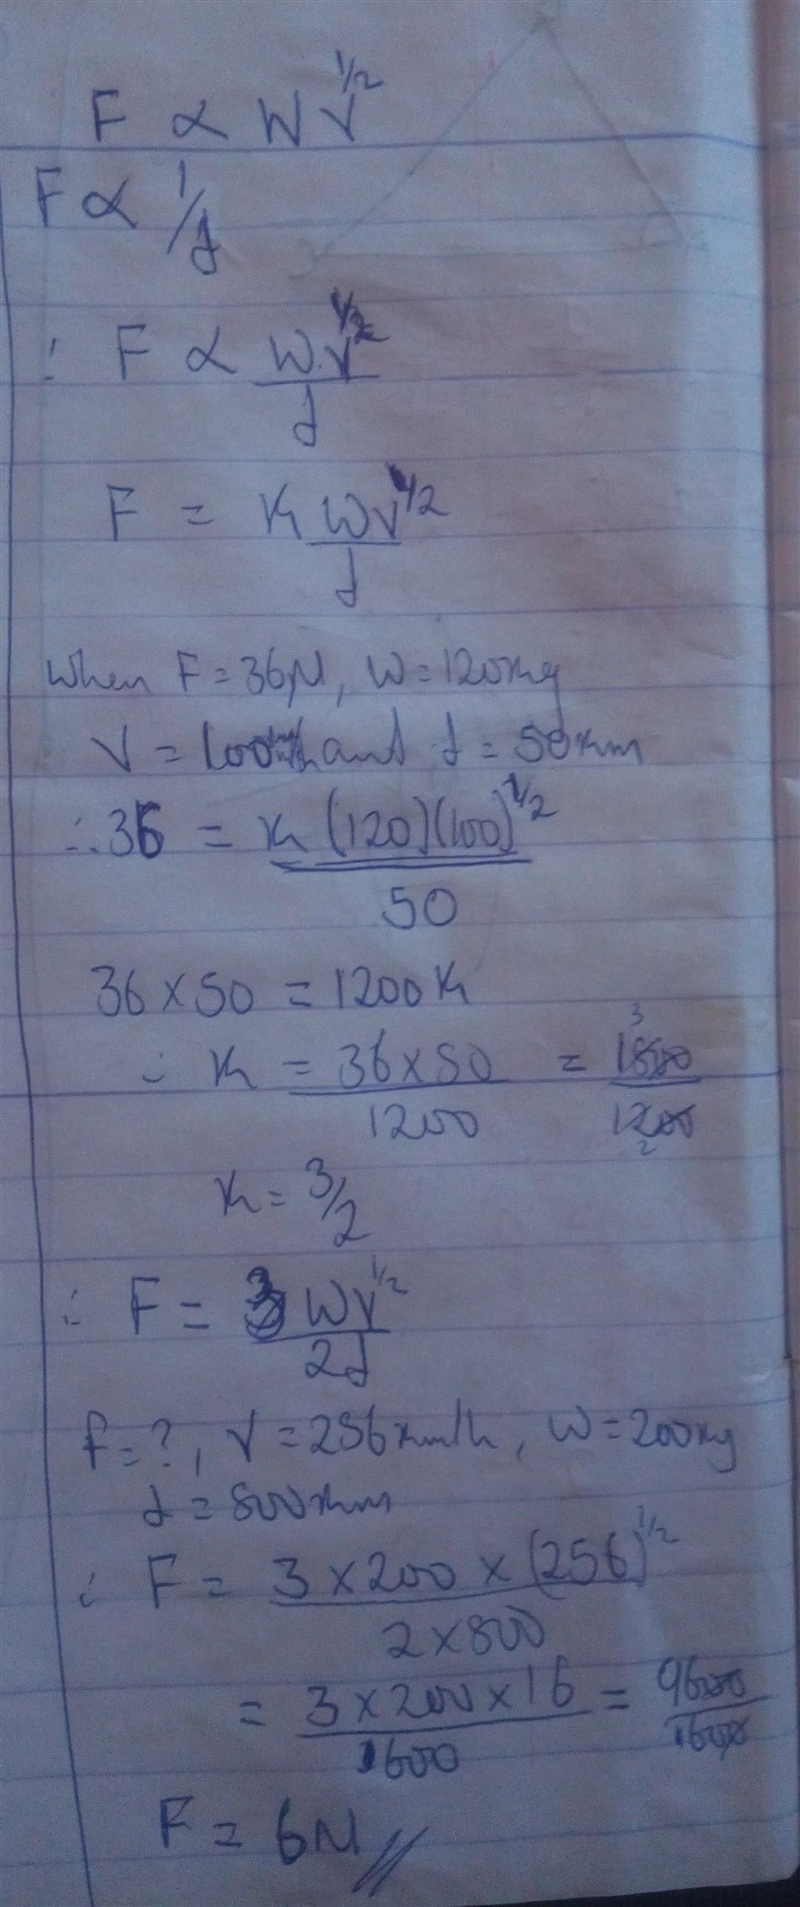 F ∝ WV^1/2
F ∝ 1/d
∴ F ∝ WV^1/2 / d
F = K WV^1/2 / d
When F = 36N, W = 120kg
V = 100km/h and d = 50km
∴ 36 = K (120)(100)^1/2 / 50
36 × 50 = 1200K
∴ K = 36 × 50 / 1200 = 1800 / 1200
3
2
K = 3/2
∴ F = 3WV^1/2 / 2d
F = ?, V = 256km/h, W = 200kg
d = 800km
∴ F = 3 × 200 × (256)^1/2 / 2 × 800
= 3 × 200 × 16 / 1600 = 9600 / 1600
F = 6N //